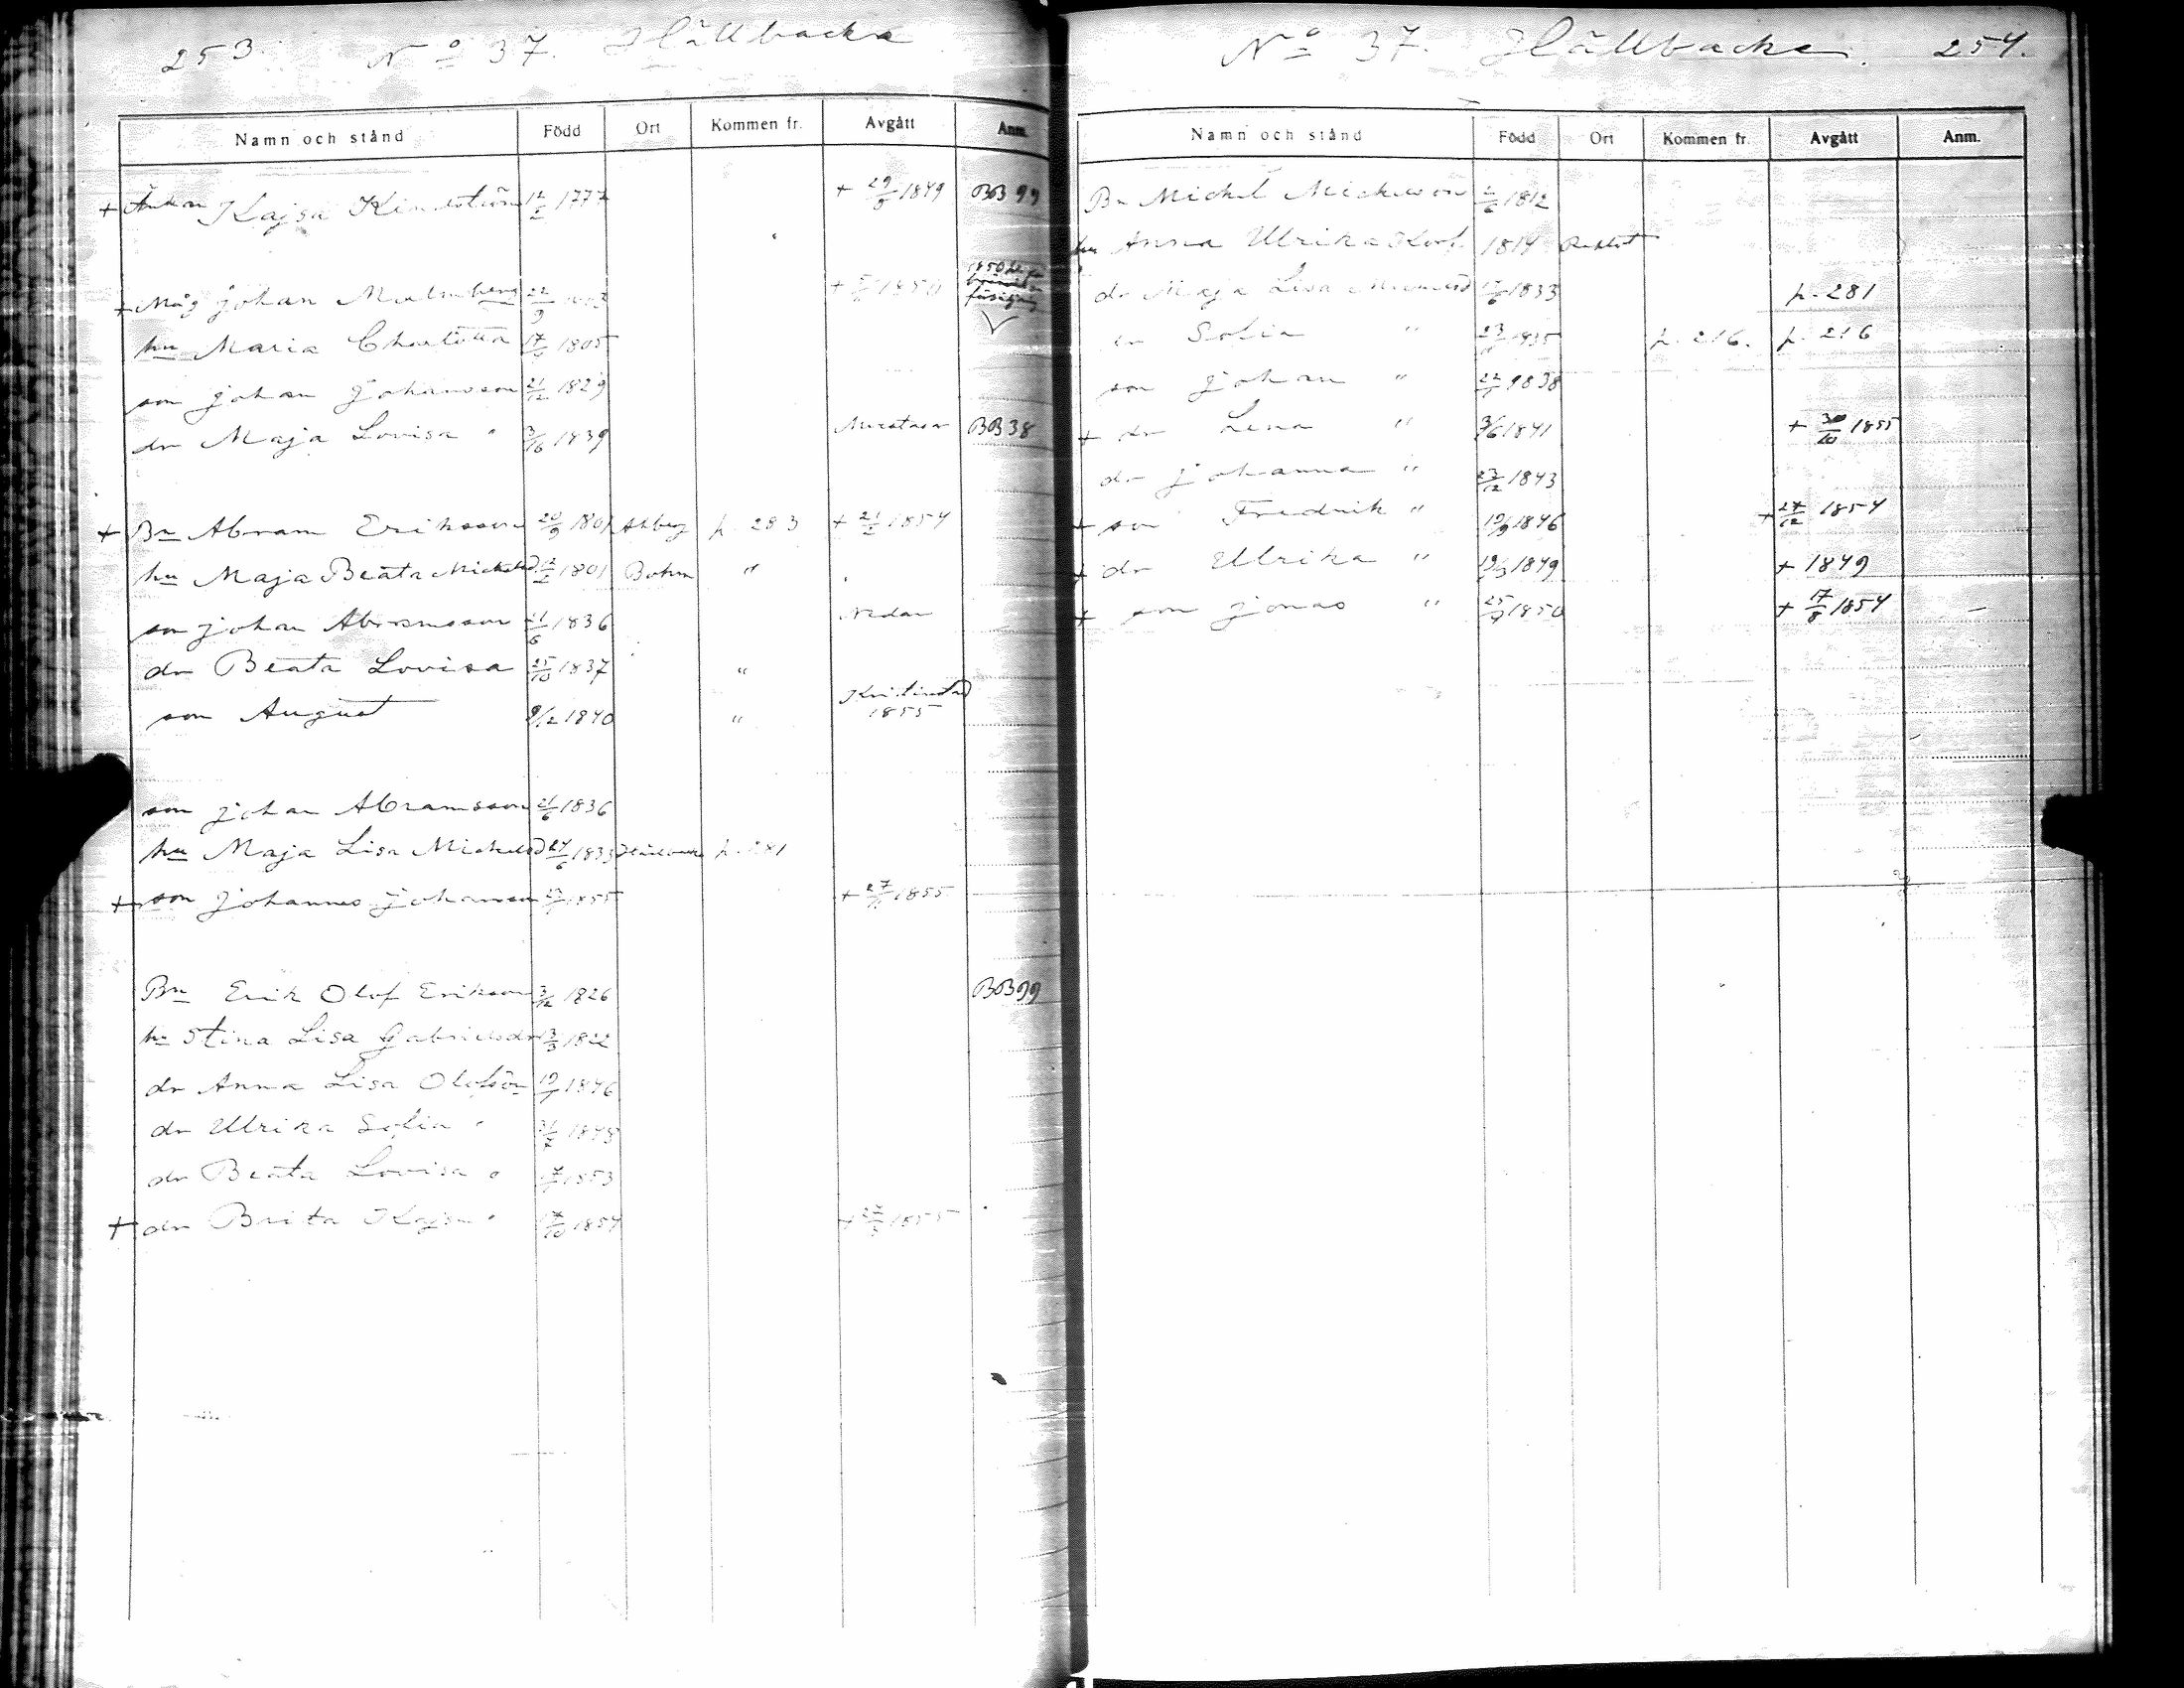 253. No 37. Hällbacka
Namn och stånd Född Ort Kommen fr. Avgått Anm.
+ Änkan Kajsa 12/2 1777 + 29/5 1849 BB 99
+ Måg Johan Malmberg 22/9 + 1850
hu Maria Charlotta 17/ 1805
son Johan Johansson 21/12 1829
dr Maja Lovisa " 3/10 1839 BB 38
+ Bn Abram Eriksson 20/9 1801 p. 283 + 21/2 1854
hu Maja Beata 1801 "
son Johan Abramsson 21/6 1836 Nedan
dr Beata Lovisa 25/10 1837 "
son August 9/12 1840 " Kristinestad
1855
son Johan Abramsson 21/6 1836
hu Maja Lisa Michelsd 27/6 1833 p. 281
+ son Johannes Johansson 1855 + 27/11 1855
Bn Erik Olof Eriksson 3/12 1826 BB 99
hu Stina Lisa Gabrielsdr 3/3 1822
dr Anna Lisa 19/7 1846
dr Ulrika Sofia " 31/7 1848
dr Beata Lovisa " 1853
+ dr Brita Kajsa " 1854 + 22/3 1855
No 37. Hällbacka. 254.
Namn och stånd Född Ort Kommen fr. Avgått Anm.
Bn Michel Michelsson 2/6 1812
hu Anna Ulrika 1814
dr Maja Lisa 1833 p. 281
Sofia " 1835 p. 216. p. 216
son Johan " 22/ 1838
+ dr Lena " 3/6 1841 + 30/10 1855
dr Johanna " 23/12 1843
+ son Fredrik " 19/9 1846 + 27/12 1854
+ dr Ulrika " 19/3 1849 + 1849
+ son Jonas " 25/9 1850 + 17/8 1854